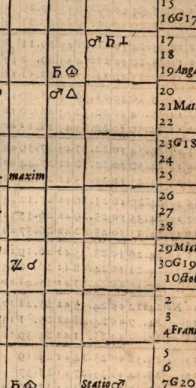 15
16 G 17
♂ ♄ ⊥ 17
18
♄ 19 Ang
20
♂ △ 21 Mat
22
23 G 18
24
maxim 25
26
27
28
29 Mich
♃ ☌ 30 G 19
1 Octob
2
3
4 Fran
5
6
♄ Statio ♂ 7 G 20